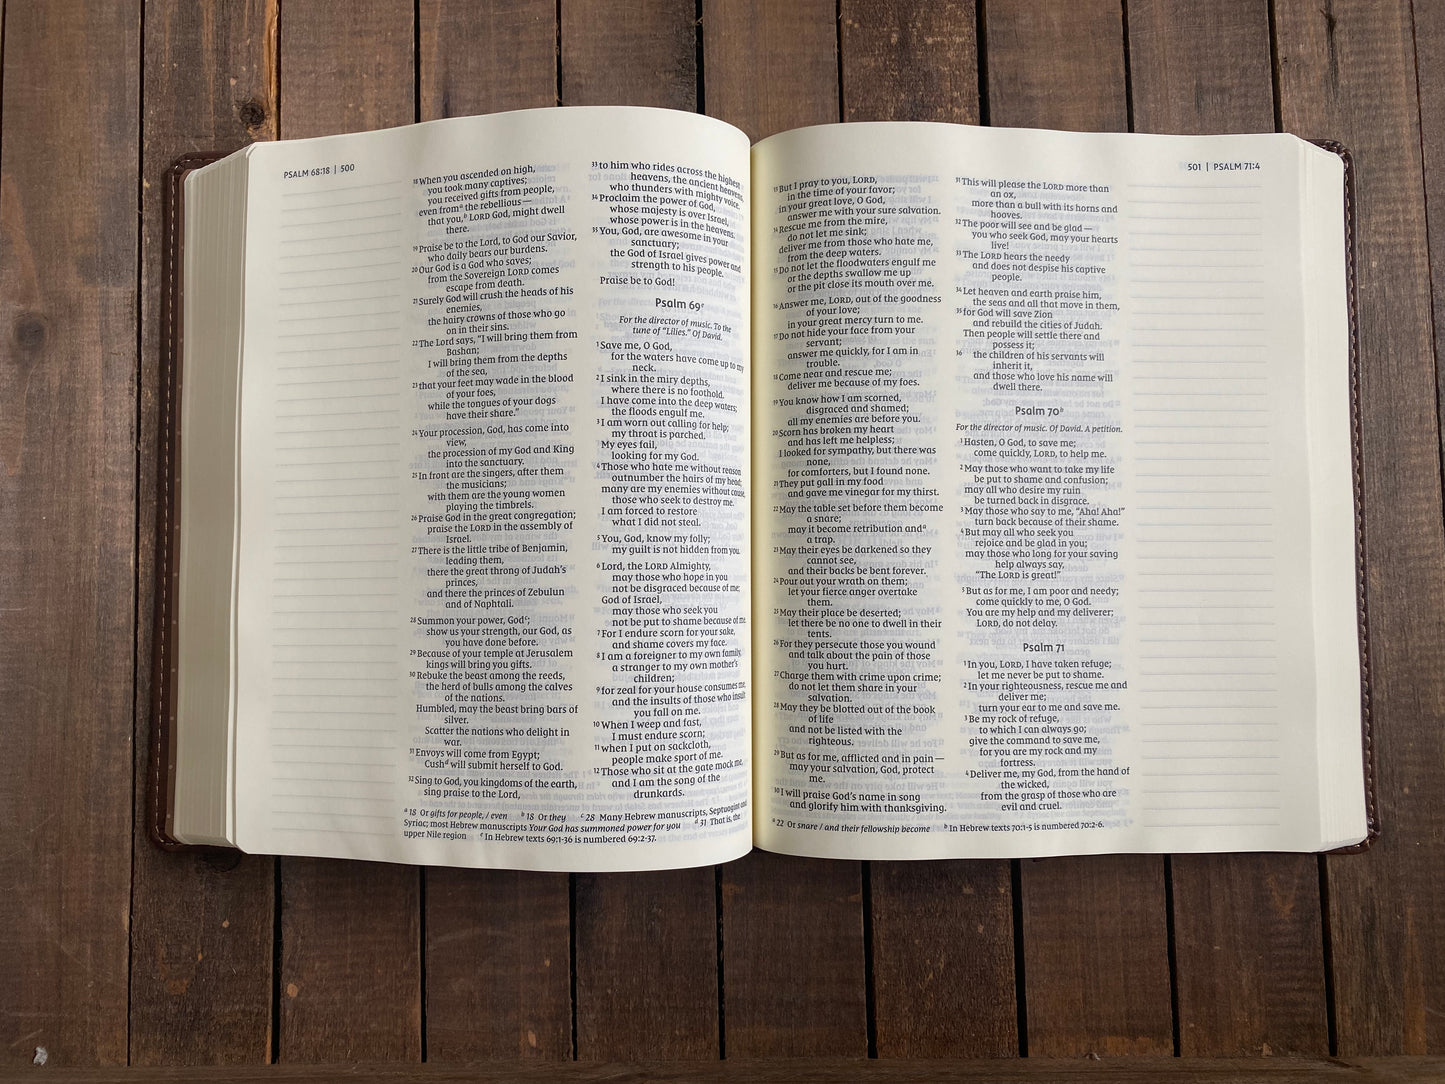 PSALM 68:18 | 500
18 When you ascended on high,
you took many captives;
you received gifts from people,
even from a the rebellious—
that you, b LORD God, might dwell
there.
19 Praise be to the Lord, to God our Savior,
who daily bears our burdens.
20 Our God is a God who saves;
from the Sovereign LORD comes
escape from death.
21 Surely God will crush the heads of his
enemies,
the hairy crowns of those who go
on in their sins.
22 The Lord says, “I will bring them from
Bashan;
I will bring them from the depths
of the sea,
23 that your feet may wade in the blood
of your foes,
while the tongues of your dogs
have their share.”
24 Your procession, God, has come into
view,
the procession of my God and King
into the sanctuary.
25 In front are the singers, after them
the musicians;
with them are the young women
playing the timbrels.
26 Praise God in the great congregation;
praise the LORD in the assembly of
Israel.
27 There is the little tribe of Benjamin,
leading them,
there the great throng of Judah’s
princes,
and there the princes of Zebulun
and of Naphtali.
28 Summon your power, God c;
show us your strength, our God, as
you have done before.
29 Because of your temple at Jerusalem
kings will bring you gifts.
30 Rebuke the beast among the reeds,
the herd of bulls among the calves
of the nations.
Humbled, may the beast bring bars of
silver.
Scatter the nations who delight in
war.
31 Envoys will come from Egypt;
Cush d will submit herself to God.
32 Sing to God, you kingdoms of the earth,
sing praise to the Lord,
33 to him who rides across the highest
heavens, the ancient heavens,
who thunders with mighty voice.
34 Proclaim the power of God,
whose majesty is over Israel,
whose power is in the heavens.
35 You, God, are awesome in your
sanctuary;
the God of Israel gives power and
strength to his people.
Praise be to God!
Psalm 69 e
For the director of music. To the
tune of “Lilies.” Of David.
1 Save me, O God,
for the waters have come up to my
neck.
2 I sink in the miry depths,
where there is no foothold.
I have come into the deep waters;
the floods engulf me.
3 I am worn out calling for help;
my throat is parched.
My eyes fail,
looking for my God.
4 Those who hate me without reason
outnumber the hairs of my head;
many are my enemies without cause,
those who seek to destroy me.
I am forced to restore
what I did not steal.
5 You, God, know my folly;
my guilt is not hidden from you.
6 Lord, the LORD Almighty,
may those who hope in you
not be disgraced because of me;
God of Israel,
may those who seek you
not be put to shame because of me.
7 For I endure scorn for your sake,
and shame covers my face.
8 I am a foreigner to my own family,
a stranger to my own mother’s
children;
9 for zeal for your house consumes me,
and the insults of those who insult
you fall on me.
10 When I weep and fast,
I must endure scorn;
11 when I put on sackcloth,
people make sport of me.
12 Those who sit at the gate mock me,
and I am the song of the
drunkards.
a 18 Or gifts for people, / even b 18 Or they c 28 Many Hebrew manuscripts, Septuagint and
Syriac; most Hebrew manuscripts Your God has summoned power for you d 31 That is, the
upper Nile region e In Hebrew texts 69:1-36 is numbered 69:2-37.
501 | PSALM 71:4
13 But I pray to you, LORD,
in the time of your favor;
in your great love, O God,
answer me with your sure salvation.
14 Rescue me from the mire,
do not let me sink;
deliver me from those who hate me,
from the deep waters.
15 Do not let the floodwaters engulf me
or the depths swallow me up
or the pit close its mouth over me.
16 Answer me, LORD, out of the goodness
of your love;
in your great mercy turn to me.
17 Do not hide your face from your
servant;
answer me quickly, for I am in
trouble.
18 Come near and rescue me;
deliver me because of my foes.
19 You know how I am scorned,
disgraced and shamed;
all my enemies are before you.
20 Scorn has broken my heart
and has left me helpless;
I looked for sympathy, but there was
none,
for comforters, but I found none.
21 They put gall in my food
and gave me vinegar for my thirst.
22 May the table set before them become
a snare;
may it become retribution and a
a trap.
23 May their eyes be darkened so they
cannot see,
and their backs be bent forever.
24 Pour out your wrath on them;
let your fierce anger overtake
them.
25 May their place be deserted;
let there be no one to dwell in their
tents.
26 For they persecute those you wound
and talk about the pain of those
you hurt.
27 Charge them with crime upon crime;
do not let them share in your
salvation.
28 May they be blotted out of the book
of life
and not be listed with the
righteous.
29 But as for me, afflicted and in pain—
may your salvation, God, protect
me.
30 I will praise God’s name in song
and glorify him with thanksgiving.
31 This will please the LORD more than
an ox,
more than a bull with its horns and
hooves.
32 The poor will see and be glad—
you who seek God, may your hearts
live!
33 The LORD hears the needy
and does not despise his captive
people.
34 Let heaven and earth praise him,
the seas and all that move in them,
35 for God will save Zion
and rebuild the cities of Judah.
Then people will settle there and
possess it;
36 the children of his servants will
inherit it,
and those who love his name will
dwell there.
Psalm 70 b
For the director of music. Of David. A petition.
1 Hasten, O God, to save me;
come quickly, LORD, to help me.
2 May those who want to take my life
be put to shame and confusion;
may all who desire my ruin
be turned back in disgrace.
3 May those who say to me, “Aha! Aha!”
turn back because of their shame.
4 But may all who seek you
rejoice and be glad in you;
may those who long for your saving
help always say,
“The LORD is great!”
5 But as for me, I am poor and needy;
come quickly to me, O God.
You are my help and my deliverer;
LORD, do not delay.
Psalm 71
1 In you, LORD, I have taken refuge;
let me never be put to shame.
2 In your righteousness, rescue me and
deliver me;
turn your ear to me and save me.
3 Be my rock of refuge,
to which I can always go;
give the command to save me,
for you are my rock and my
fortress.
4 Deliver me, my God, from the hand of
the wicked,
from the grasp of those who are
evil and cruel.
a 22 Or snare / and their fellowship become b In Hebrew texts 70:1-5 is numbered 70:2-6.